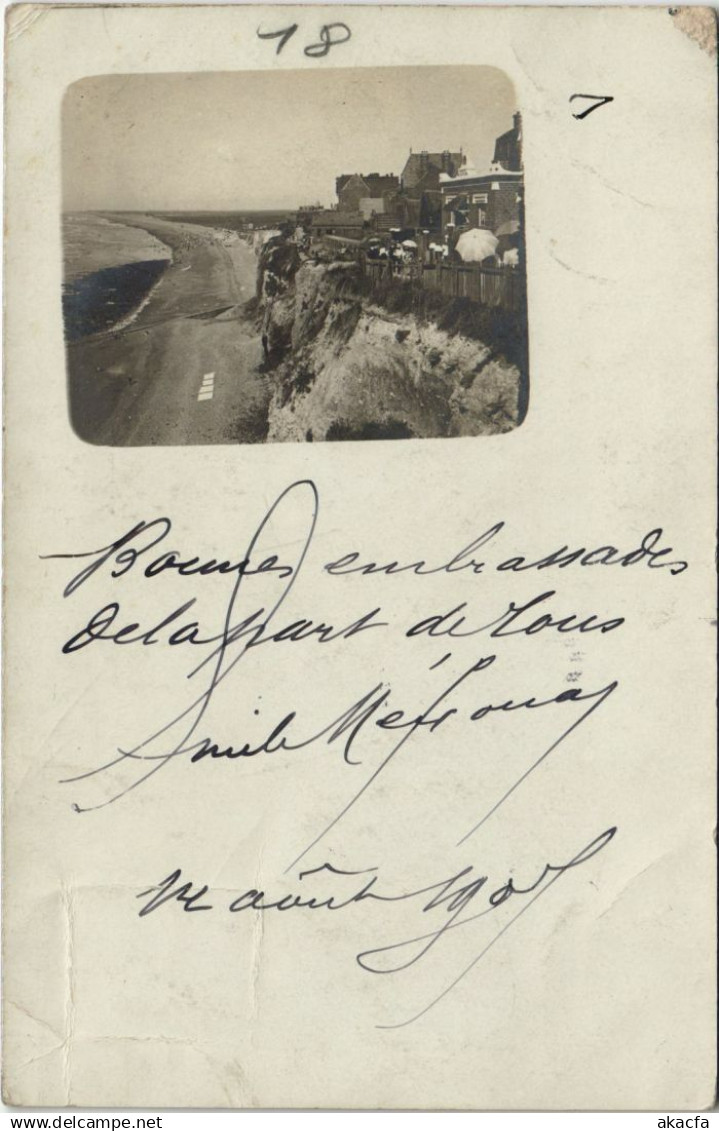 18
7
Bonnes embrassades
de la part de Tous
Emile
12 août 190
akacfa
www.delcampe.net